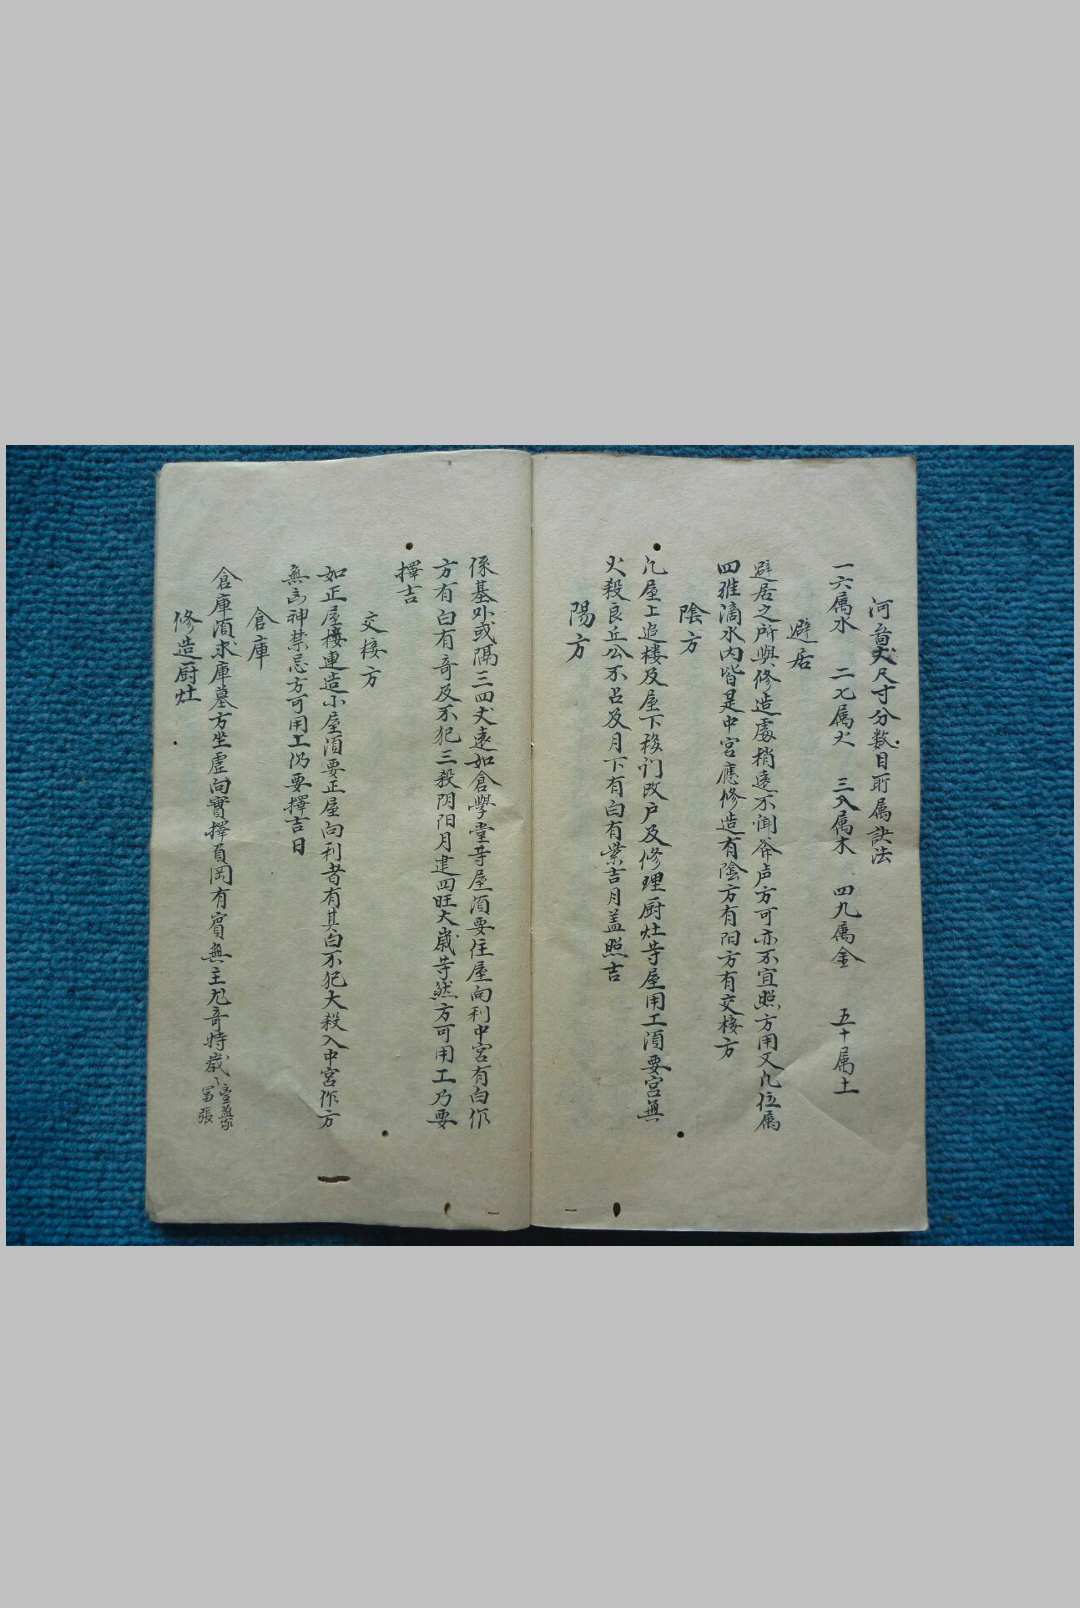 河圖丈尺寸分数目所属訣法
一六属水 二七属火 三八属木 四九属金 五十属土
避居
避居之所與修造處稍遠不闻斧声方可亦不宜照方用又凡位属
四維滴水内皆是中宮應修造有陰方有阳方有交接方
陰方
凡屋上造楼及屋下移门改户及修理厨灶等屋用工須要宮無
火殺良丘公不占及月下有白有紫吉月盖照吉
陽方
係基外或隔三四丈遠如倉學堂等屋須要住屋向利中宮有白作
方有白有奇及不犯三殺阴阳月建四旺大歲等然方可用工乃要
擇吉
交接方
如正屋樓連造小屋須要正屋向利者有其白不犯大殺入中宮作方
無凶神禁忌方可用工仍要擇吉日
倉庫
倉庫須求庫墓方坐虛向實擇員岡有賓無主尤奇時歲
富張
修造厨灶